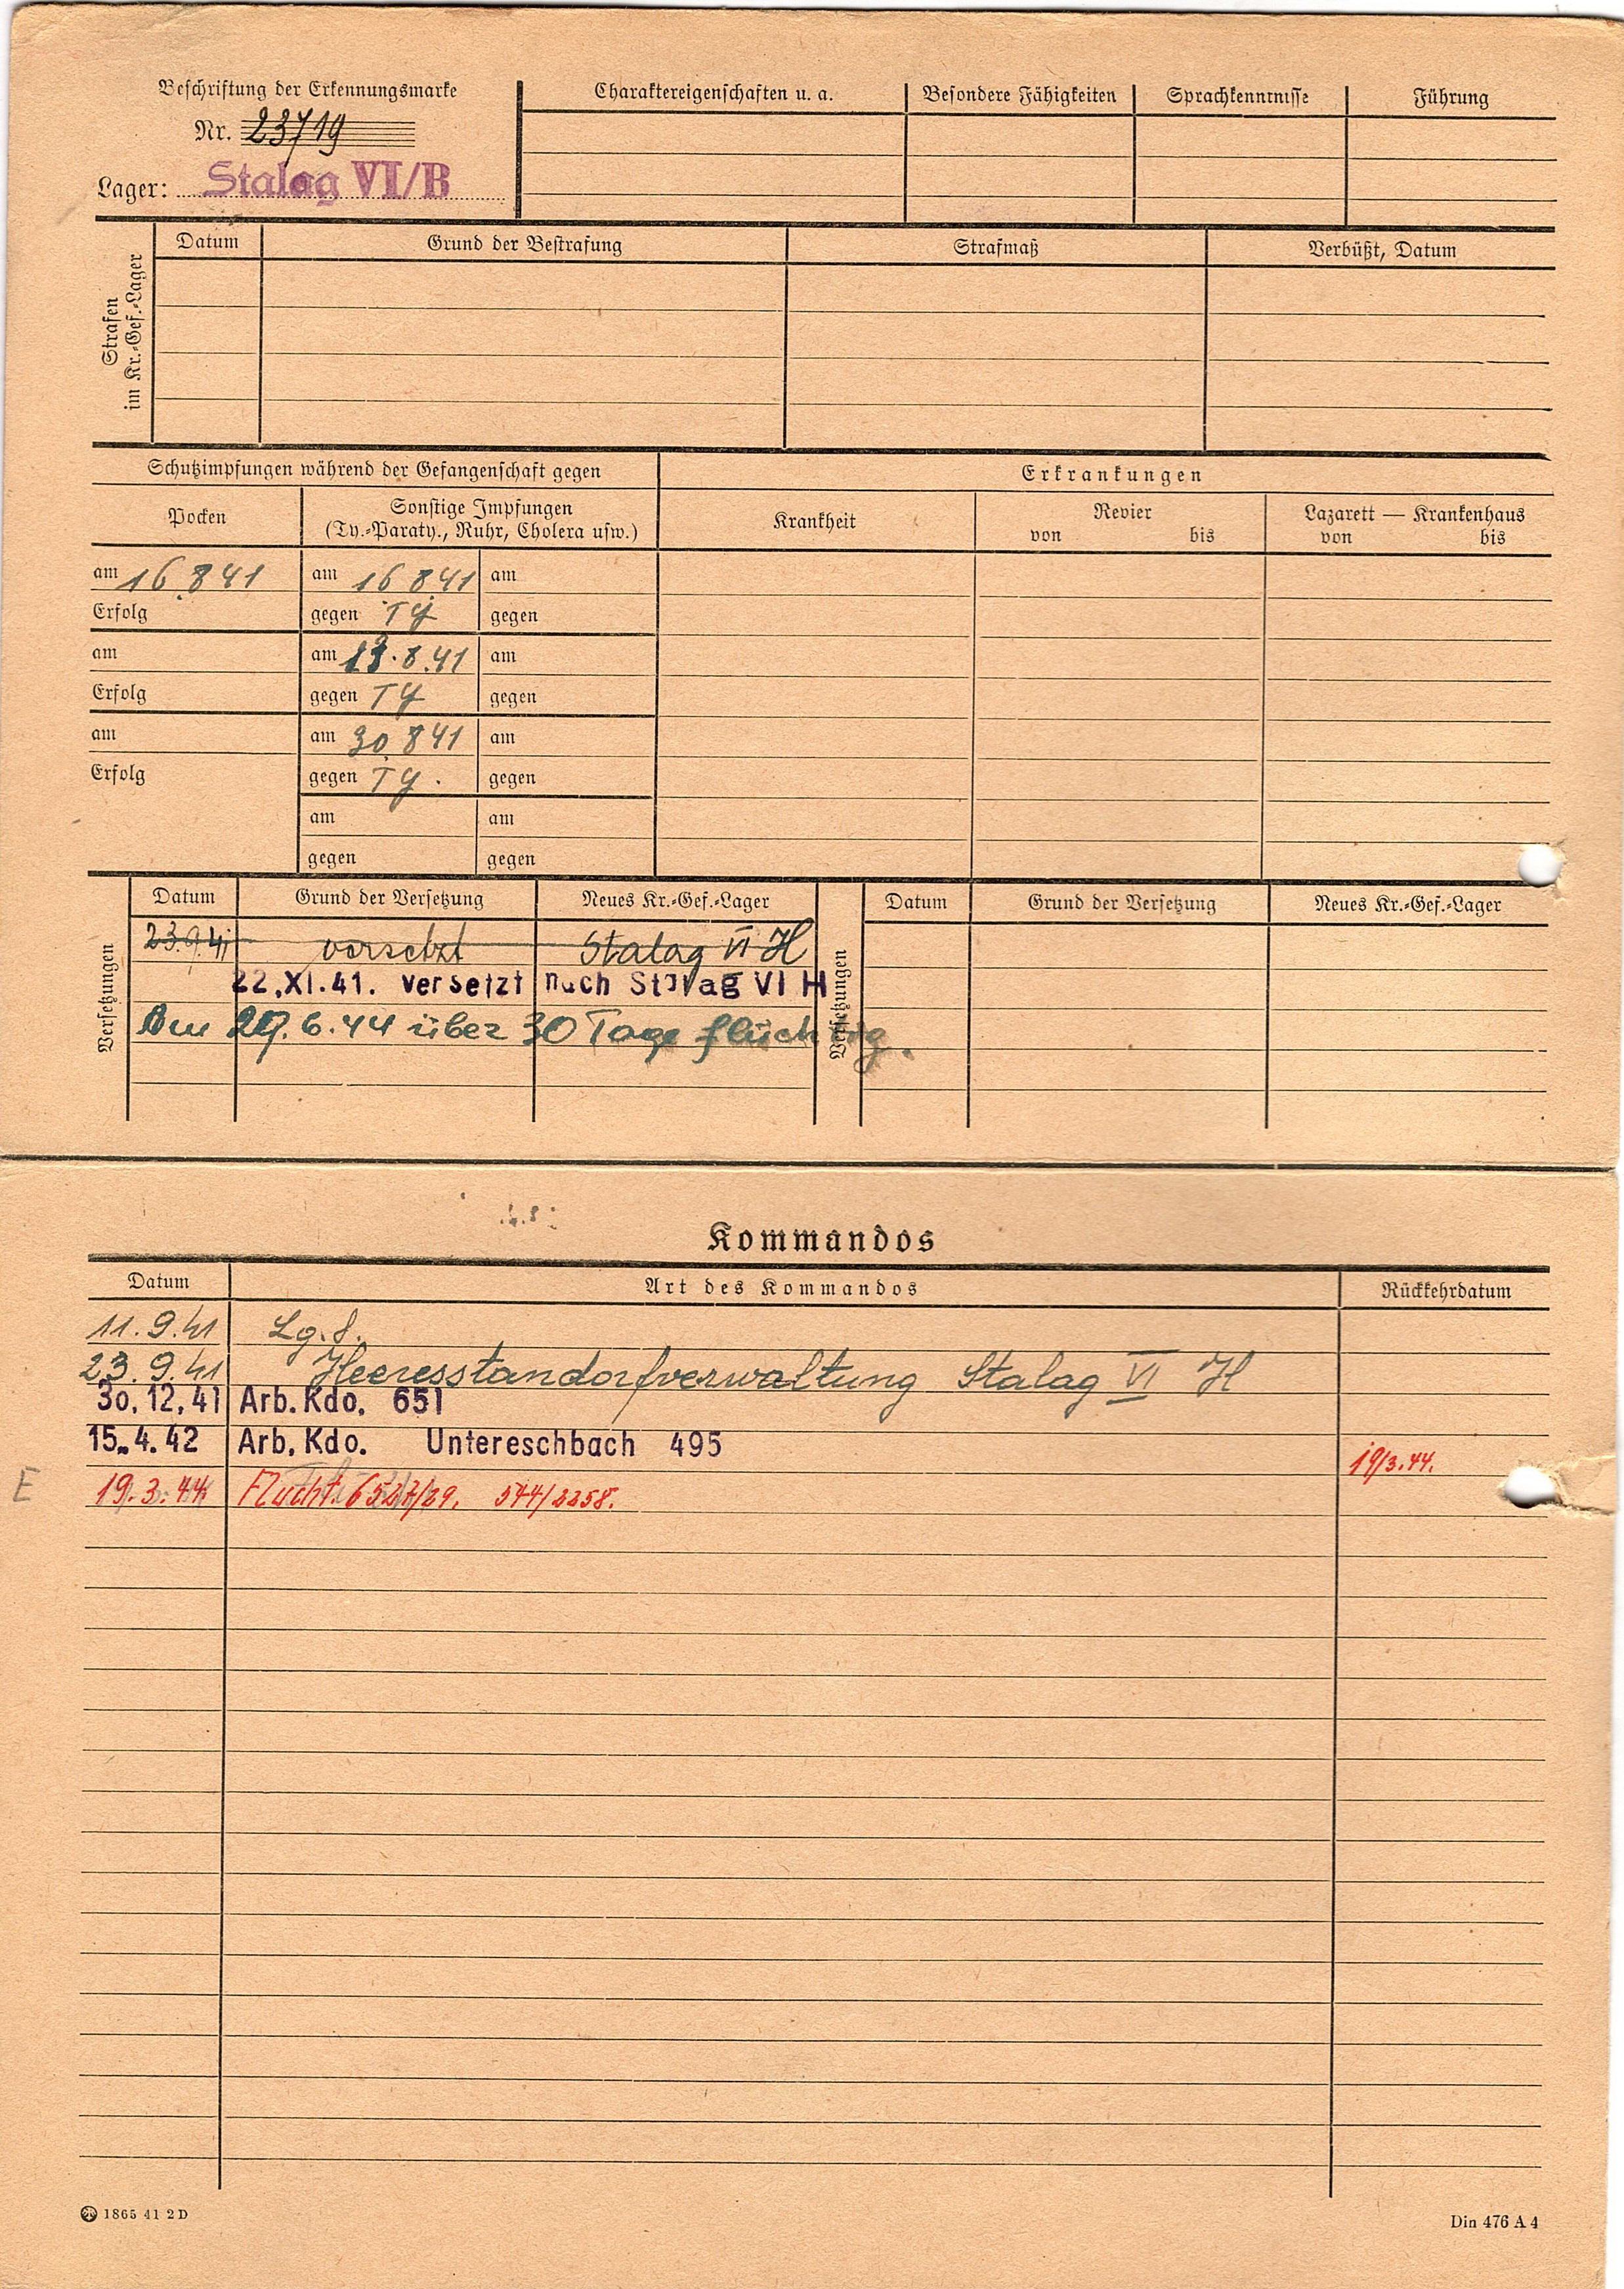 Beschriftung der Erkennungsmarke
Nr. 23719
Lager: Stalag VI/B
Charaktereigenschaften u. a.
Besondere Fähigkeiten
Sprachkenntnisse
Führung
Strafen im Kr.-Gef.-Lager
Datum
Grund der Bestrafung
Strafmaß
Verbüßt, Datum
Schutzimpfungen während der Gefangenschaft gegen
Erkrankungen
Pocken
Sonstige Impfungen
(Ty.-Paraty., Ruhr, Cholera usw.)
Krankheit
Revier
von bis
Lazarett — Krankenhaus
von bis
am 16.8 41 am 16 8 41 am
Erfolg gegen Ty gegen
am am 23.8.41 am
Erfolg gegen Ty gegen
am am 30.8 41 am
Erfolg gegen Ty. gegen
am am
gegen gegen
Versetzungen
Datum Grund der Versetzung Neues Kr.-Gef.-Lager
23.9.41 versetzt Stalag VI H
22.XI.41. versetzt nach Stalag VI H
Am 29.6.44 über 30 Tage flüchtig.
Versetzungen
Datum Grund der Versetzung Neues Kr.-Gef.-Lager
Kommandos
Datum Art des Kommandos Rückkehrdatum
11.9.41 Lg.f.
23.9.41 Heeresstandortverwaltung Stalag VI H
30.12.41 Arb. Kdo. 651
15.4.42 Arb. Kdo. Untereschbach 495 19/3.44.
E 19.3.44 Flucht. 6527/29. 544/2258.
1865 41 2 D
Din 476 A 4